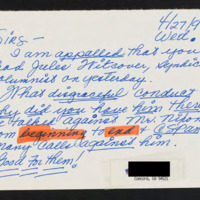 4/27/9
Wed.
Sirs -
I am appalled that you
had Jules Witcover, syndic
columnist on yesterday.
What disgraceful conduct
Why did you have him there
talked against Mr. Nixon
from beginning to end & CSPAN
many calls against him.
Good for them!
Concord, CA 94521